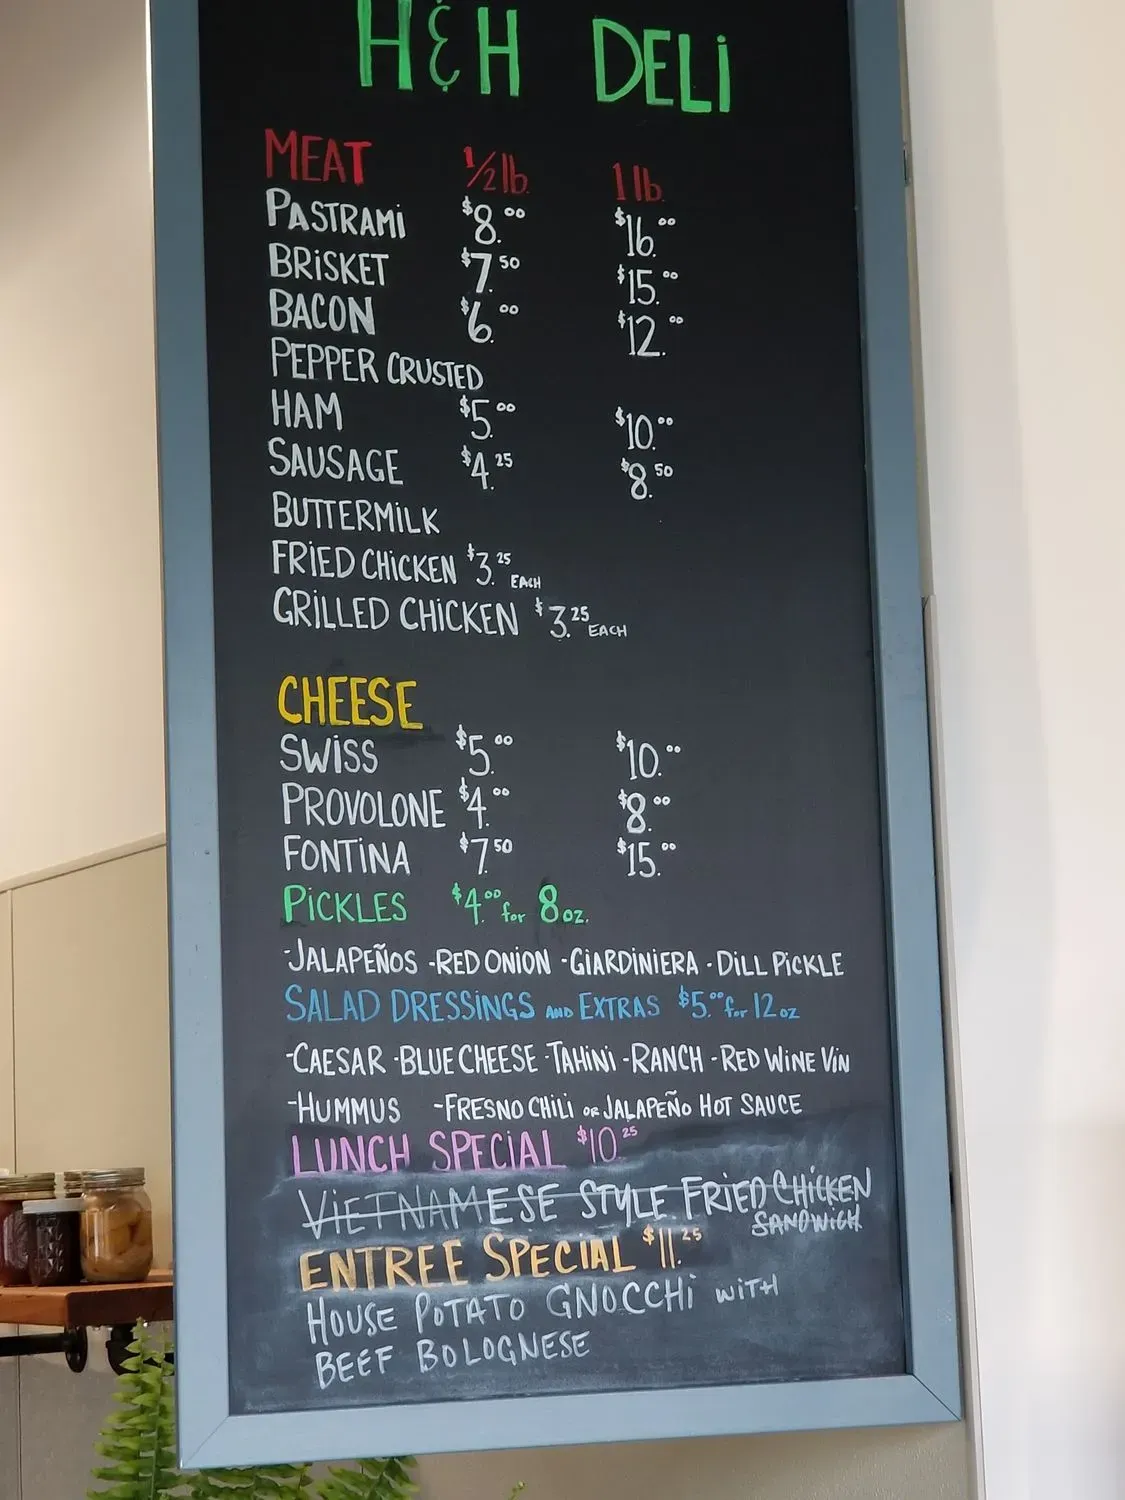 H & H DELI
MEAT 1/2 lb. 1 lb.
PASTRAMI $8.00 $16.00
BRISKET $7.50 $15.00
BACON $6.00 $12.00
PEPPER CRUSTED
HAM $5.00 $10.00
SAUSAGE $4.25 $8.50
BUTTERMILK
FRIED CHICKEN $3.25 EACH
GRILLED CHICKEN $3.25 EACH
CHEESE
SWISS $5.00 $10.00
PROVOLONE $4.00 $8.00
FONTINA $7.50 $15.00
PICKLES $4.00 for 8 oz.
-JALAPEÑOS -RED ONION -GIARDINIERA -DILL PICKLE
SALAD DRESSINGS AND EXTRAS $5.00 for 12 oz
-CAESAR -BLUE CHEESE -TAHINI -RANCH -RED WINE VIN
-HUMMUS -FRESNO CHILI OR JALAPEÑO HOT SAUCE
LUNCH SPECIAL $10.25
VIETNAMESE STYLE FRIED CHICKEN
SANDWICH
ENTREE SPECIAL $11.25
HOUSE POTATO GNOCCHI WITH
BEEF BOLOGNESE